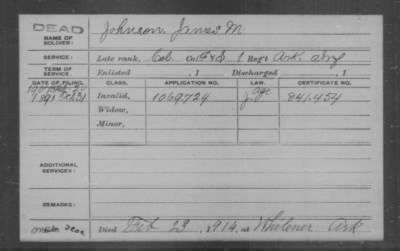 DEAD
NAME OF SOLDIER: Johnson, James M.
SERVICE: Late rank, Col. Co. F & S 1 Reg't Ark. Inf
TERM OF SERVICE: Enlisted , 1 Discharged , 1
DATE OF FILING. CLASS. APPLICATION NO. LAW. CERTIFICATE NO.
1891 Invalid, 1069724 age 841.454
Widow,
Minor,
ADDITIONAL SERVICES:
REMARKS:
Died Feb 23, 1914, at Whitener Ark